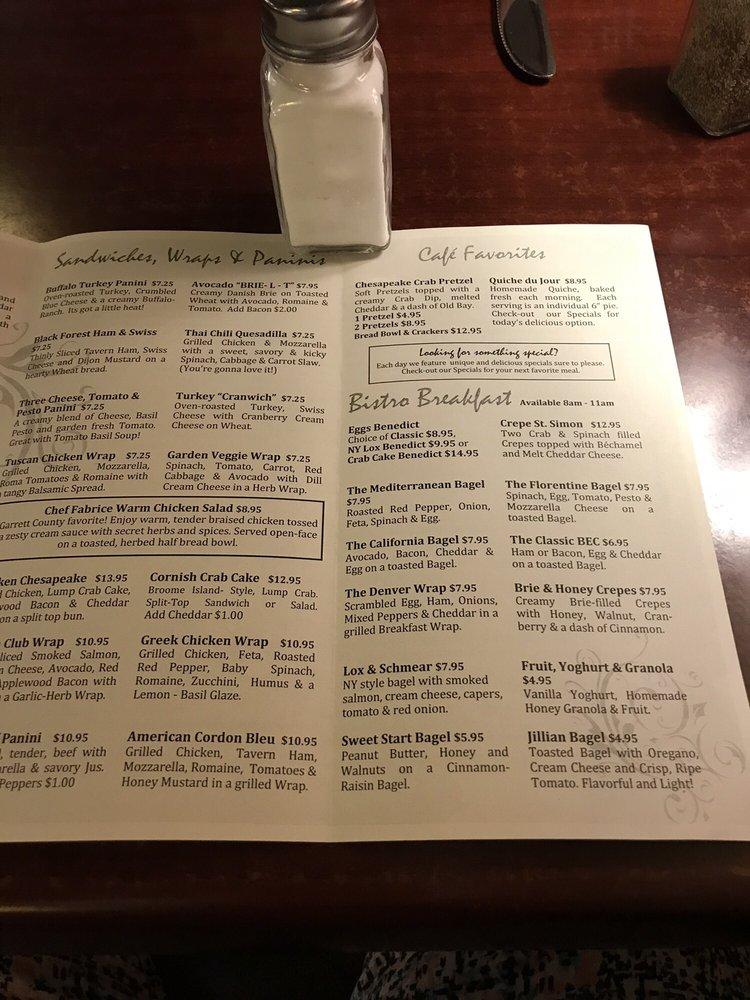 Sandwiches, Wraps & Paninis
Buffalo Turkey Panini $7.25
Oven-roasted Turkey, Crumbled
Blue Cheese & a creamy Buffalo-
Ranch. Its got a little heat!
Avocado "BRIE- L - T" $7.95
Creamy Danish Brie on Toasted
Wheat with Avocado, Romaine &
Tomato. Add Bacon $2.00
and
dar
a
th
Black Forest Ham & Swiss
$7.25
Thinly Sliced Tavern Ham, Swiss
Cheese and Dijon Mustard on a
hearty Wheat bread.
Thai Chili Quesadilla $7.25
Grilled Chicken & Mozzarella
with a sweet, savory & kicky
Spinach, Cabbage & Carrot Slaw.
(You're gonna love it!)
Three Cheese, Tomato &
Pesto Panini $7.25
A creamy blend of Cheese, Basil
Pesto and garden fresh Tomato.
Great with Tomato Basil Soup!
Turkey "Cranwich" $7.25
Oven-roasted Turkey, Swiss
Cheese with Cranberry Cream
Cheese on Wheat.
Tuscan Chicken Wrap $7.25
Grilled Chicken, Mozzarella,
Roma Tomatoes & Romaine with
tangy Balsamic Spread.
Garden Veggie Wrap $7.25
Spinach, Tomato, Carrot, Red
Cabbage & Avocado with Dill
Cream Cheese in a Herb Wrap.
Chef Fabrice Warm Chicken Salad $8.95
Garrett County favorite! Enjoy warm, tender braised chicken tossed
a zesty cream sauce with secret herbs and spices. Served open-face
on a toasted, herbed half bread bowl.
ken Chesapeake $13.95
d Chicken, Lump Crab Cake,
wood Bacon & Cheddar
on a split top bun.
Cornish Crab Cake $12.95
Broome Island- Style, Lump Crab.
Split-Top Sandwich or Salad.
Add Cheddar $1.00
Club Wrap $10.95
liced Smoked Salmon,
m Cheese, Avocado, Red
Applewood Bacon with
a Garlic-Herb Wrap.
Greek Chicken Wrap $10.95
Grilled Chicken, Feta, Roasted
Red Pepper, Baby Spinach,
Romaine, Zucchini, Humus & a
Lemon - Basil Glaze.
Panini $10.95
, tender, beef with
arella & savory Jus.
Peppers $1.00
American Cordon Bleu $10.95
Grilled Chicken, Tavern Ham,
Mozzarella, Romaine, Tomatoes &
Honey Mustard in a grilled Wrap.
Café Favorites
Chesapeake Crab Pretzel
Soft Pretzels topped with a
creamy Crab Dip, melted
Cheddar & a dash of Old Bay.
1 Pretzel $4.95
2 Pretzels $8.95
Bread Bowl & Crackers $12.95
Quiche du Jour $8.95
Homemade Quiche, baked
fresh each morning. Each
serving is an individual 6" pie.
Check-out our Specials for
today's delicious option.
Looking for something special?
Each day we feature unique and delicious specials sure to please.
Check-out our Specials for your next favorite meal.
Bistro Breakfast Available 8am - 11am
Eggs Benedict
Choice of Classic $8.95,
NY Lox Benedict $9.95 or
Crab Cake Benedict $14.95
Crepe St. Simon $12.95
Two Crab & Spinach filled
Crepes topped with Béchamel
and Melt Cheddar Cheese.
The Mediterranean Bagel
$7.95
Roasted Red Pepper, Onion,
Feta, Spinach & Egg.
The Florentine Bagel $7.95
Spinach, Egg, Tomato, Pesto &
Mozzarella Cheese on a
toasted Bagel.
The California Bagel $7.95
Avocado, Bacon, Cheddar &
Egg on a toasted Bagel.
The Classic BEC $6.95
Ham or Bacon, Egg & Cheddar
on a toasted Bagel.
The Denver Wrap $7.95
Scrambled Egg, Ham, Onions,
Mixed Peppers & Cheddar in a
grilled Breakfast Wrap.
Brie & Honey Crepes $7.95
Creamy Brie-filled Crepes
with Honey, Walnut, Cran-
berry & a dash of Cinnamon.
Lox & Schmear $7.95
NY style bagel with smoked
salmon, cream cheese, capers,
tomato & red onion.
Fruit, Yoghurt & Granola
$4.95
Vanilla Yoghurt, Homemade
Honey Granola & Fruit.
Sweet Start Bagel $5.95
Peanut Butter, Honey and
Walnuts on a Cinnamon-
Raisin Bagel.
Jillian Bagel $4.95
Toasted Bagel with Oregano,
Cream Cheese and Crisp, Ripe
Tomato. Flavorful and Light!